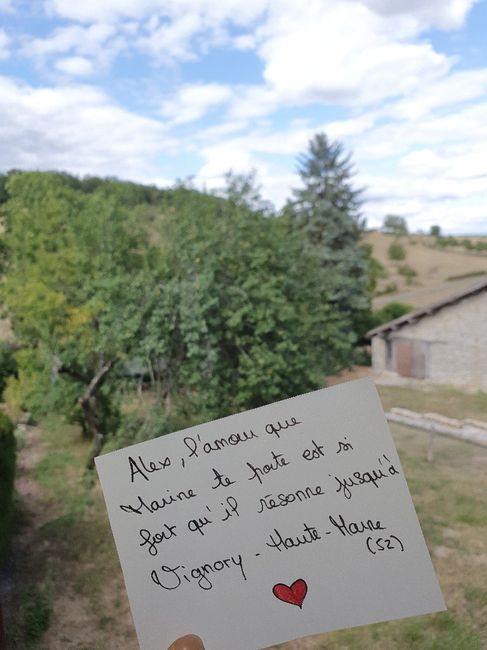 Alex, l'amour que
Marine te porte est si
fort qu'il résonne jusqu'à
Vignory - Haute-Marne
(52)